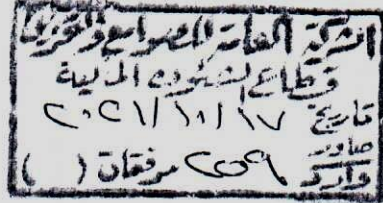 الشركة العامة للصوامع والتخزين
قطاع الشئون المالية
تاريخ ٢٠٢١/١٠/١٧
صادر
وارد ٢٥٩ مرفقات ( )